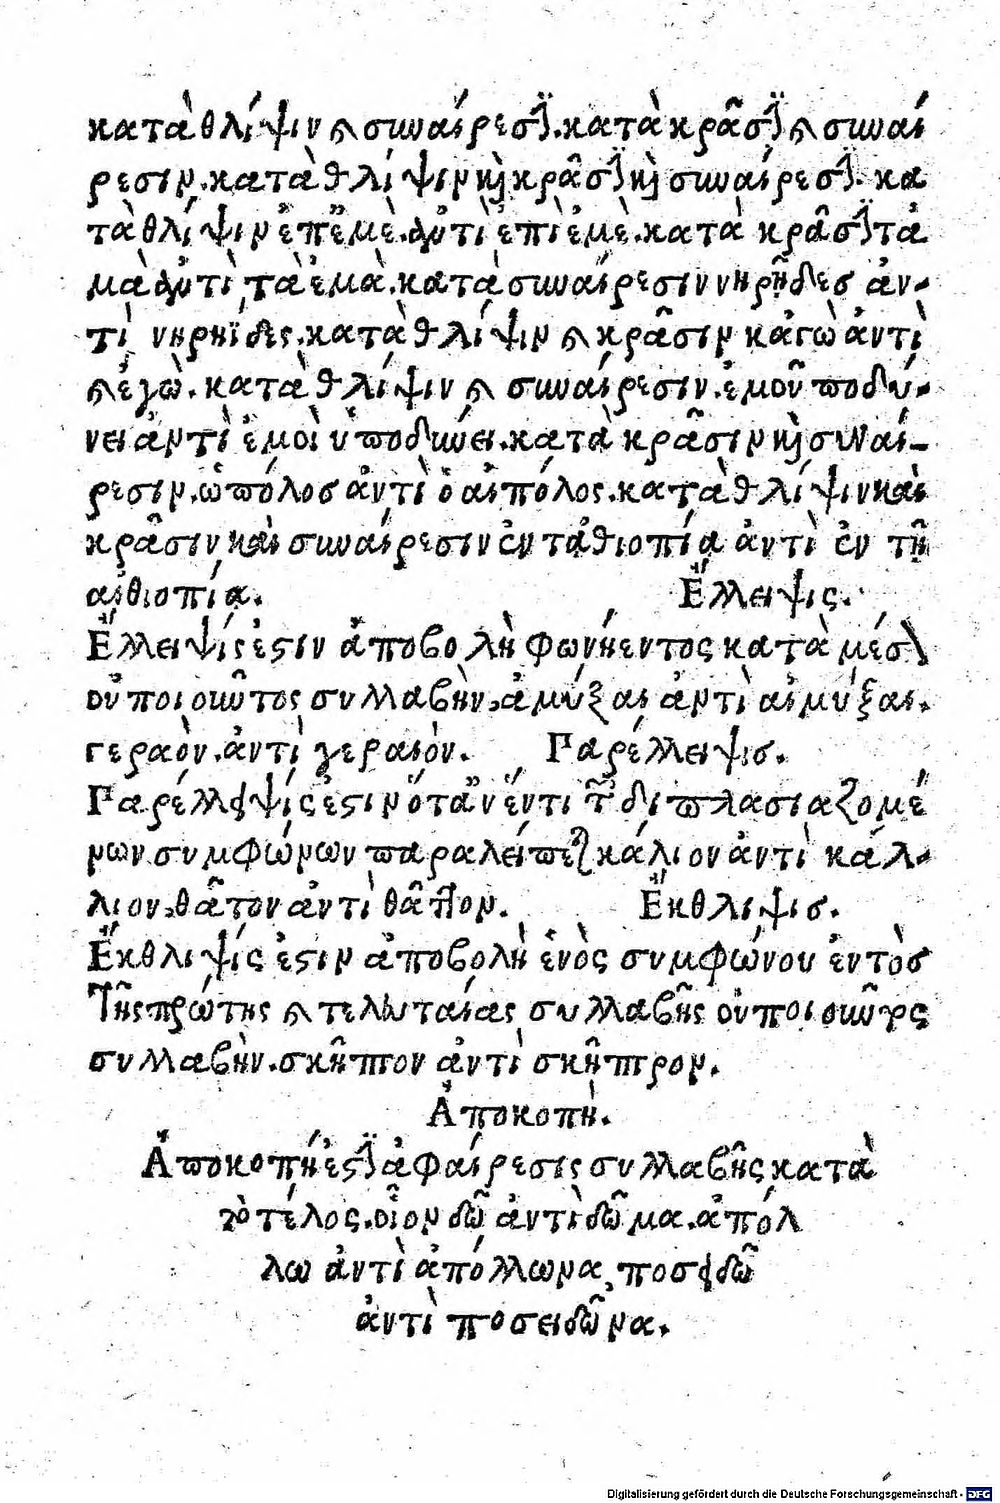 κατὰ θλίψιν ϗ συναίρεσιν. κατὰ κρᾶσιν ϗ συναί
ρεσιν. κατὰ θλίψιν κὶ κρᾶσιν κὶ συναίρεσιν. κα
τὰ θλίψιν ἐπ' ἐμὲ. ἀντὶ ἐπὶ ἐμὲ. κατὰ κρᾶσιν τἀ
μὰ ἀντὶ τὰ ἐμὰ. κατὰ συναίρεσιν νηρῇδες ἀν-
τὶ νηρηΐδες. κατὰ θλίψιν ϗ κρᾶσιν κἀγὼ ἀντὶ
ϗ ἐγὼ. κατὰ θλίψιν ϗ συναίρεσιν. ἐμοῦ ποδύ-
νει ἀντὶ ἐμοὶ ὑποδύνει. κατὰ κρᾶσιν κὶ συναί-
ρεσιν. ὠπόλος ἀντὶ ὁ αἰπόλος. κατὰ θλίψιν καὶ
κρᾶσιν καὶ συναίρεσιν ἐν τἀθιοπίᾳ ἀντὶ ἐν τῇ
αἰθιοπίᾳ. Ἔλλειψις.
Ἔλλειψίς ἐστιν ἀποβολὴ φωνήεντος κατὰ μέσον
οὐ ποιοῦντος συλλαβὴν, ἀμύξαι ἀντὶ αἰμύξαι.
γεραὸν. ἀντὶ γεραιὸν. Παρέλλειψις.
Παρέλλειψίς ἐστιν ὅταν ἕν τι τῶν διπλασιαζομέ
νων συμφώνων παραλείπεται κάλιον ἀντὶ κάλ-
λιον, θᾶτον ἀντὶ θᾶττον. Ἔκθλιψις.
Ἔκθλιψίς ἐστιν ἀποβολὴ ἑνὸς συμφώνου ἐντὸς
τῆς πρώτης ϗ τελευταίας συλλαβῆς οὐ ποιοῦντος
συλλαβὴν. σκῆπτον ἀντὶ σκῆπτρον.
Ἀποκοπὴ.
Ἀποκοπή ἐστιν ἀφαίρεσις συλλαβῆς κατὰ
τὸ τέλος. οἷον δῶ ἀντὶ δῶμα. ἀπόλ
λω ἀντὶ ἀπόλλωνα, ποσειδῶ
ἀντὶ ποσειδῶνα.
Digitalisierung gefördert durch die Deutsche Forschungsgemeinschaft - DFG